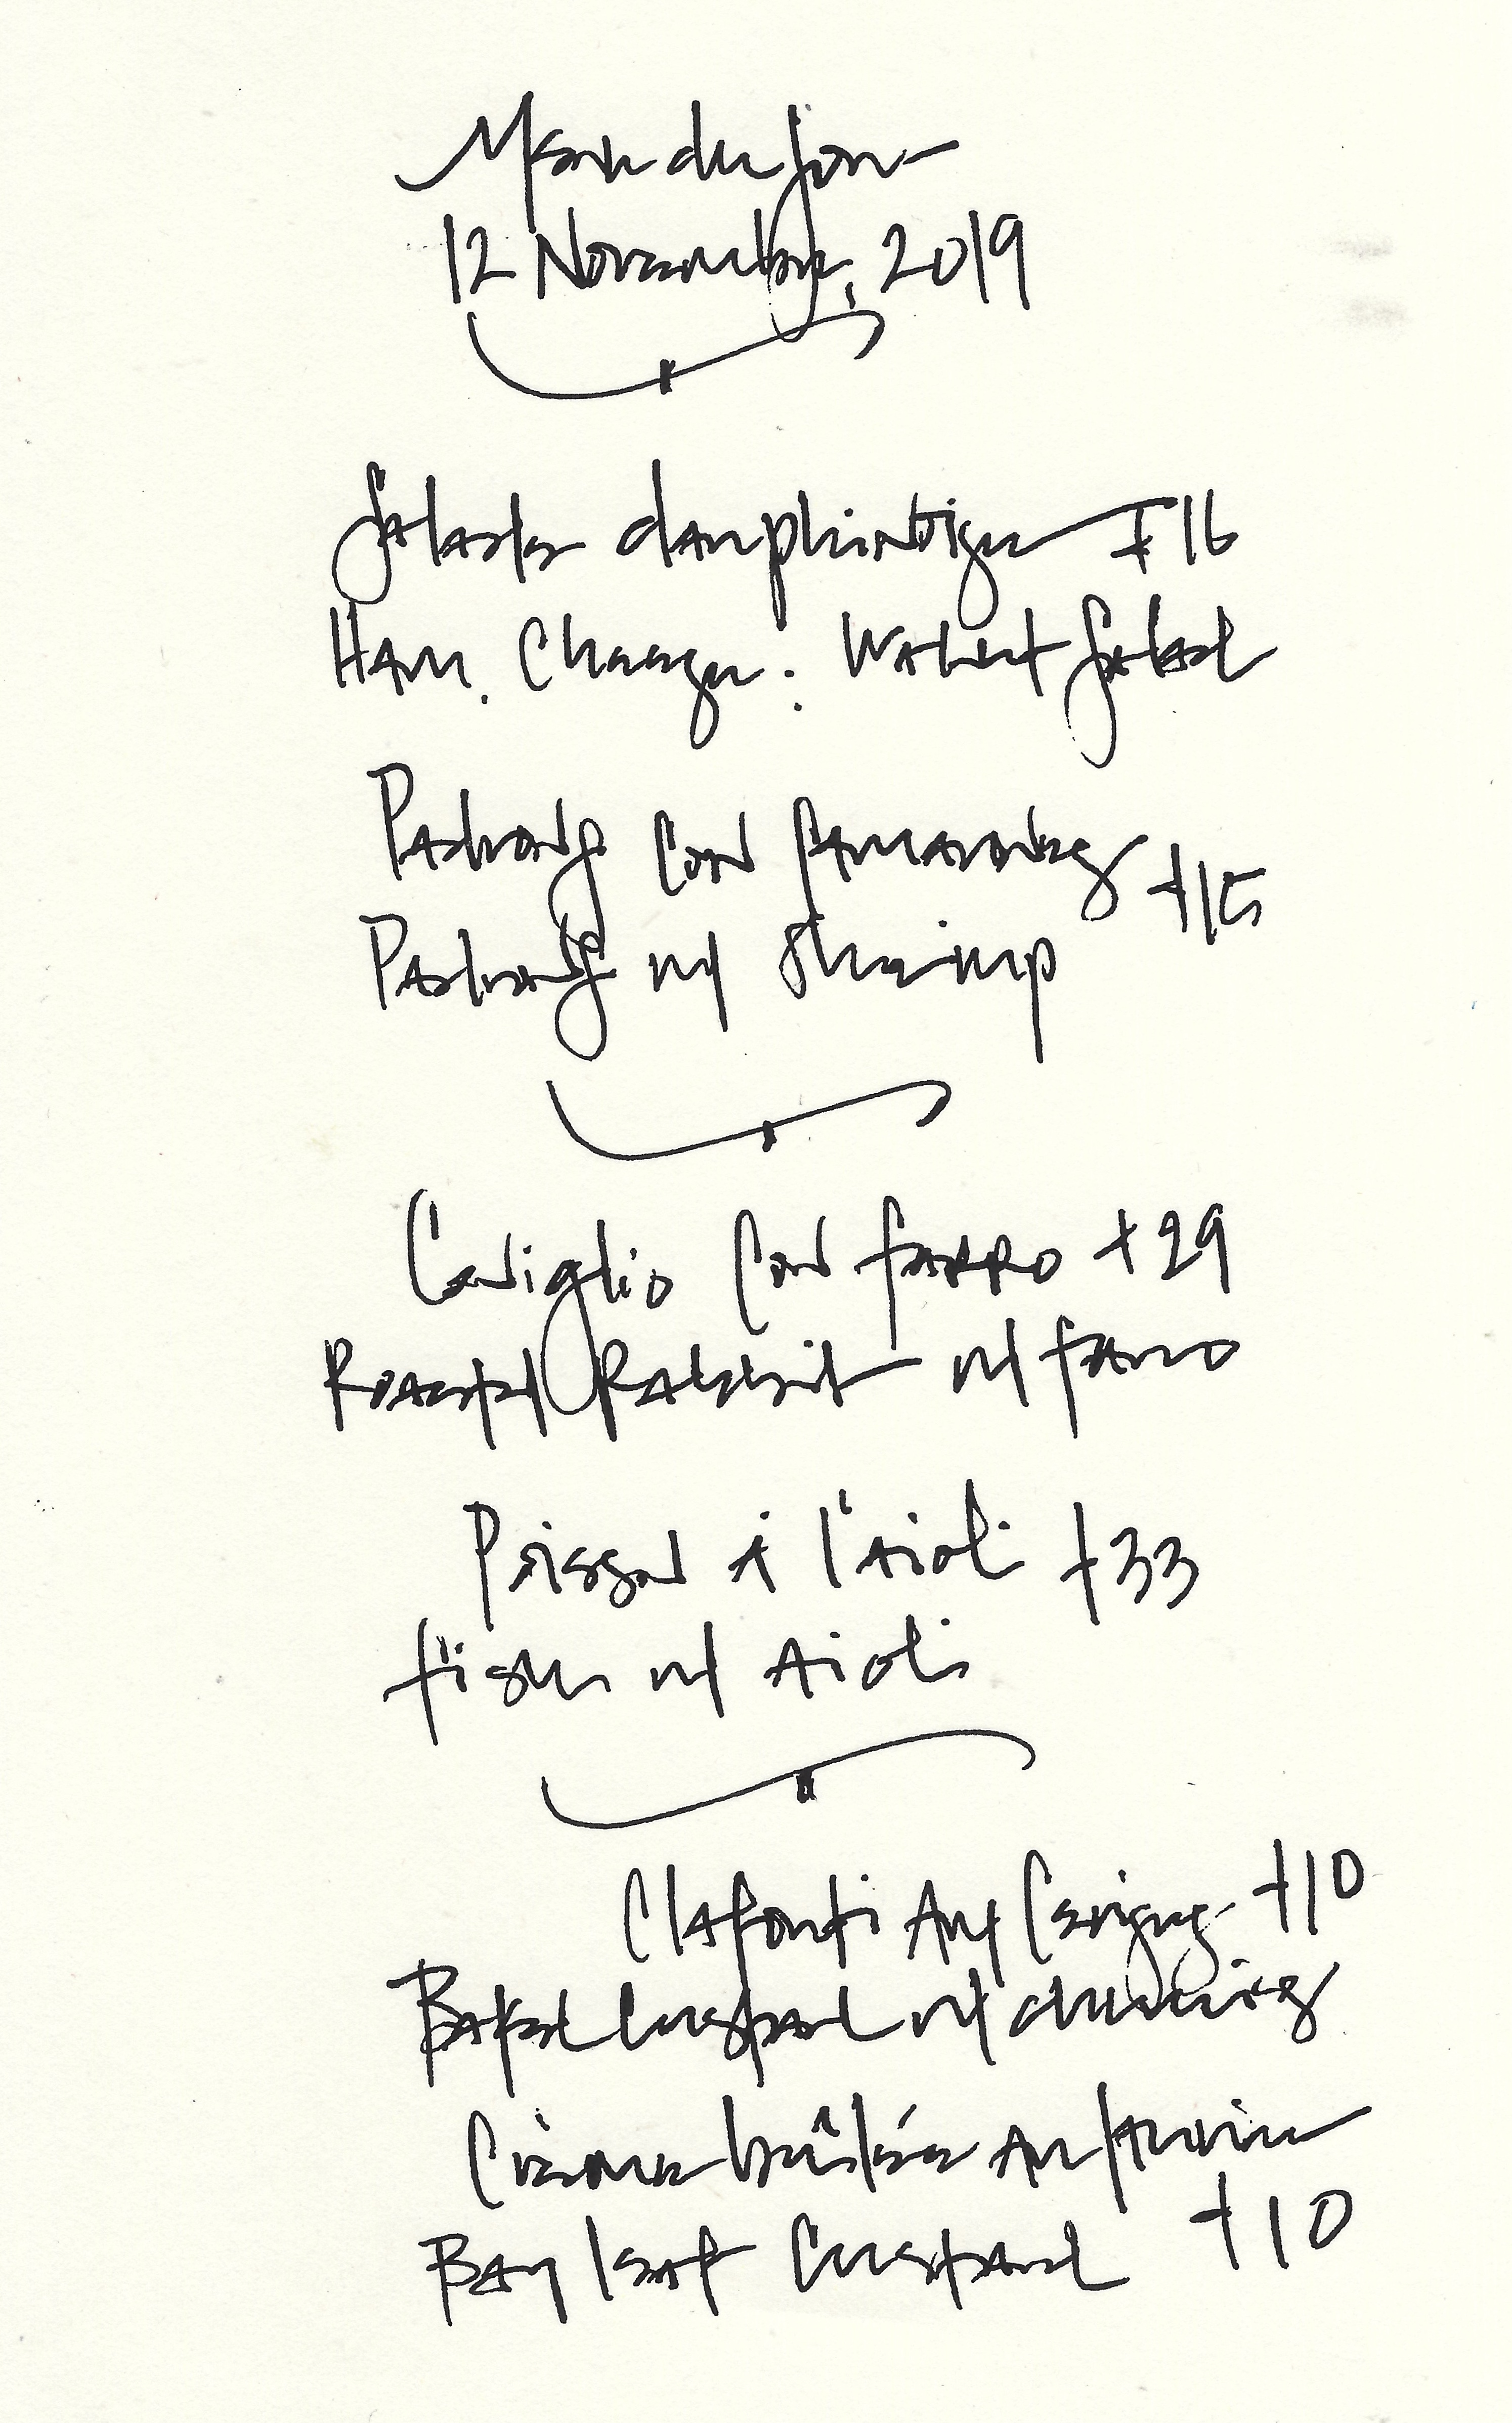 Menu du jour
12 Novembre, 2019
Salade dauphinoise +16
Ham. Cheese. Walnut Salad
Padrons con Camarones +15
Padrons w/ Shrimp
Coniglio con farro +29
Roasted Rabbit w/ farro
Poisson á l'aioli +33
fish w/ Aioli
Clafouti Aux Cerises +10
Baked Custard w/ cherries
Crème brûlée Au laurier
Bay leaf Custard +10